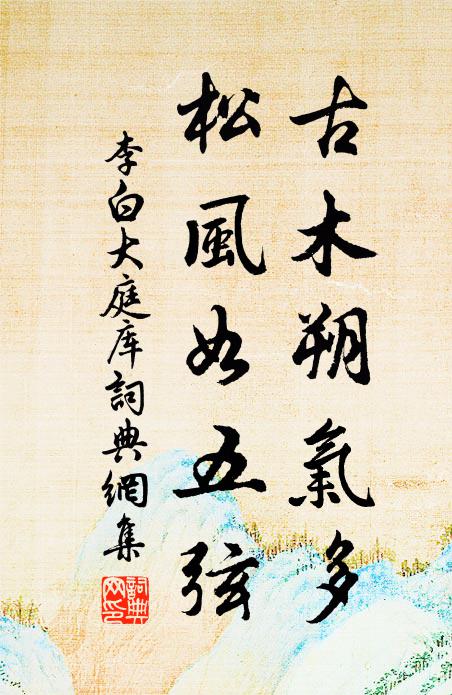 古木朔氣多
松風如五弦
李白大庭库詞典網集
詞典网印